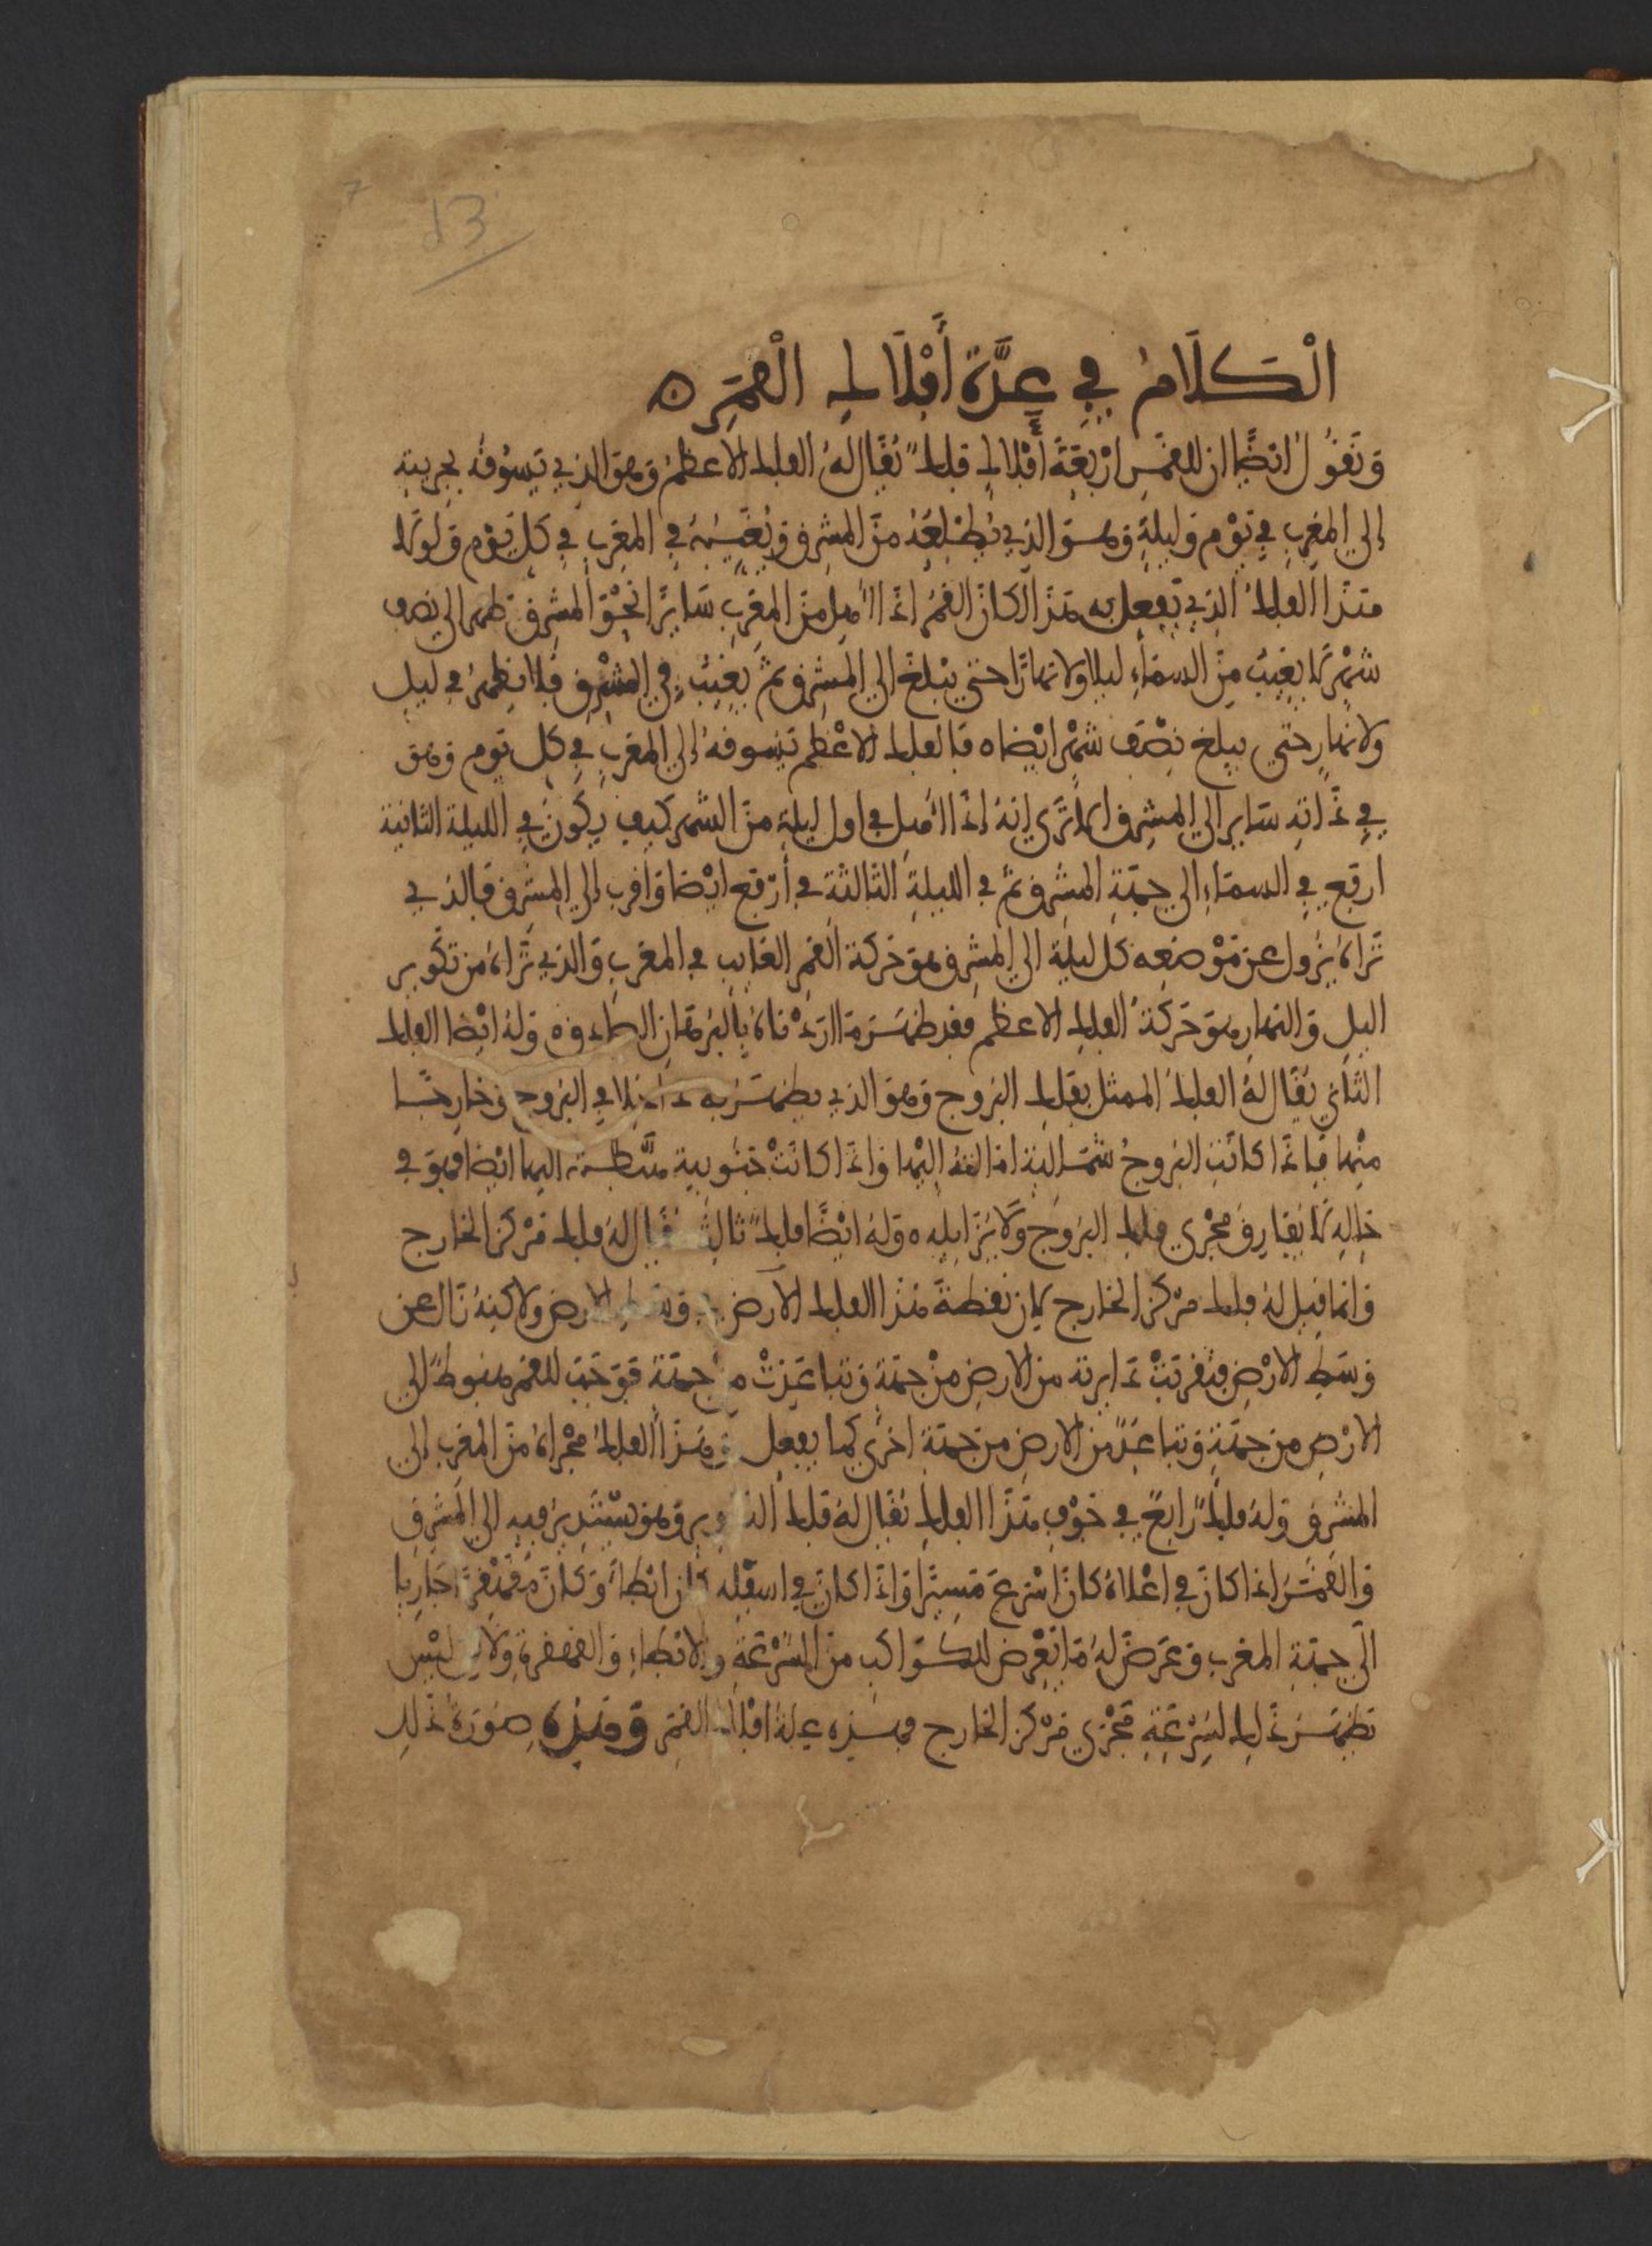 13
الْكَلَامُ فِي عِدَّةِ أَفْلَاكِ الْقَمَرِ ه
ونقول ايضًا ان للقمر اربعة افلاك فلك يقال له الفلك الاعظم وهو الذي يسوقه بجريته
إلى المغرب في يوم وليلة وهو الذي يطلعه من المشرق ويغيبه في المغرب في كل يوم ولولا
هذا الفلك الذي يفعل به هذا لكان القمر اذا اهل من المغرب سايرًا نحو المشرق ظهر الى نصف
شهر لا يغيب من السماء ليلا ولا نهارًا حتى يبلغ الى المشرق ثم يغيب في المشرق فلا يظهر في ليل
ولا نهار حتى يبلغ نصف شهر ايضا ه فالفلك الاعظم يسوقه إلى المغرب في كل يوم وهو
في ذاته ساير الى المشرق الا ترى انه اذا اهل في اول ليلة من الشهر كيف يكون في الليلة الثانية
ارفع في السماء الى جهة المشرق ثم في الليلة الثالثة في أرفع ايضا واقرب إلى المشرق فالذي
تراه يزول عن موضعه كل ليلة الى المشرق هو حركة القمر الغايب في المغرب والذي تراه من تكوير
اليل والنهار هو حركة الفلك الاعظم فقد ظهر ما اردناه بالبرهان الصادق ه وله ايضا الفلك
الثاني يقال له الفلك الممثل بفلك البروج وهو الذي يظهر به داخلا في البروج وخارجًا
منها فاذا كانت البروج شمالية اماله اليها واذا كانت جنوبية حطه اليها ايضا فهو في
حاله لا يفارق مجرى فلك البروج ولا يزايله ه وله ايضًا فلك ثالث يقال له فلك مركز الخارج
وانما قيل له فلك مركز الخارج لان نقطة هذا الفلك الارض وسط الارض ولاكنه زال عن
وسط الارض فتقربت دايرته من الارض من جهة وتباعدت من جهة فوجب للقمر هبوط الى
الارض من جهة وتباعد من الارض من جهة اخرى كما يفعل وهذا الفلك مجراه من المغرب إلى
المشرق وله فلك رابع في جوف هذا الفلك يقال له فلك التدوير وهو يستدير فيه الى المشرق
والقمر اذا كان في اعلاه كان اسرع مسيرًا واذا كان في اسفله كان ابطأ وكان متقهقرًا جاريا
الى جهة المغرب وعرض له ما يعرض للكواكب من السرعة والابطاء والقهقرة ولاكن ليس
يظهر ذلك لسرعة مجرى مركز الخارج فهذه علة افلاك القمر وهذه صورة ذلك